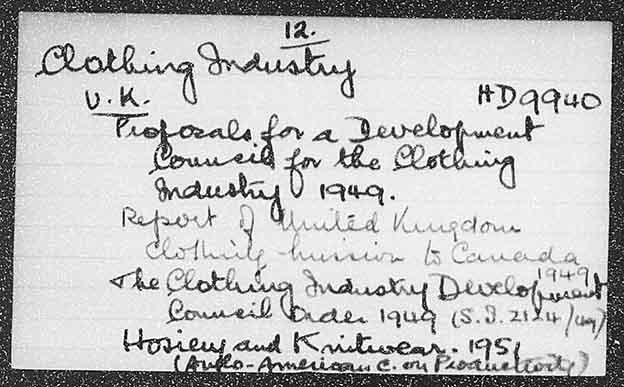 12.
Clothing Industry
U.K. HD9940
Proposals for a Development
Council for the Clothing
Industry 1949.
Report of United Kingdom
Clothing mission to Canada
1949
The Clothing Industry Development
Council Order 1949 (S.I. 2124/49)
Hosiery and Knitwear. 1951
(Anglo-American C. on Productivity)